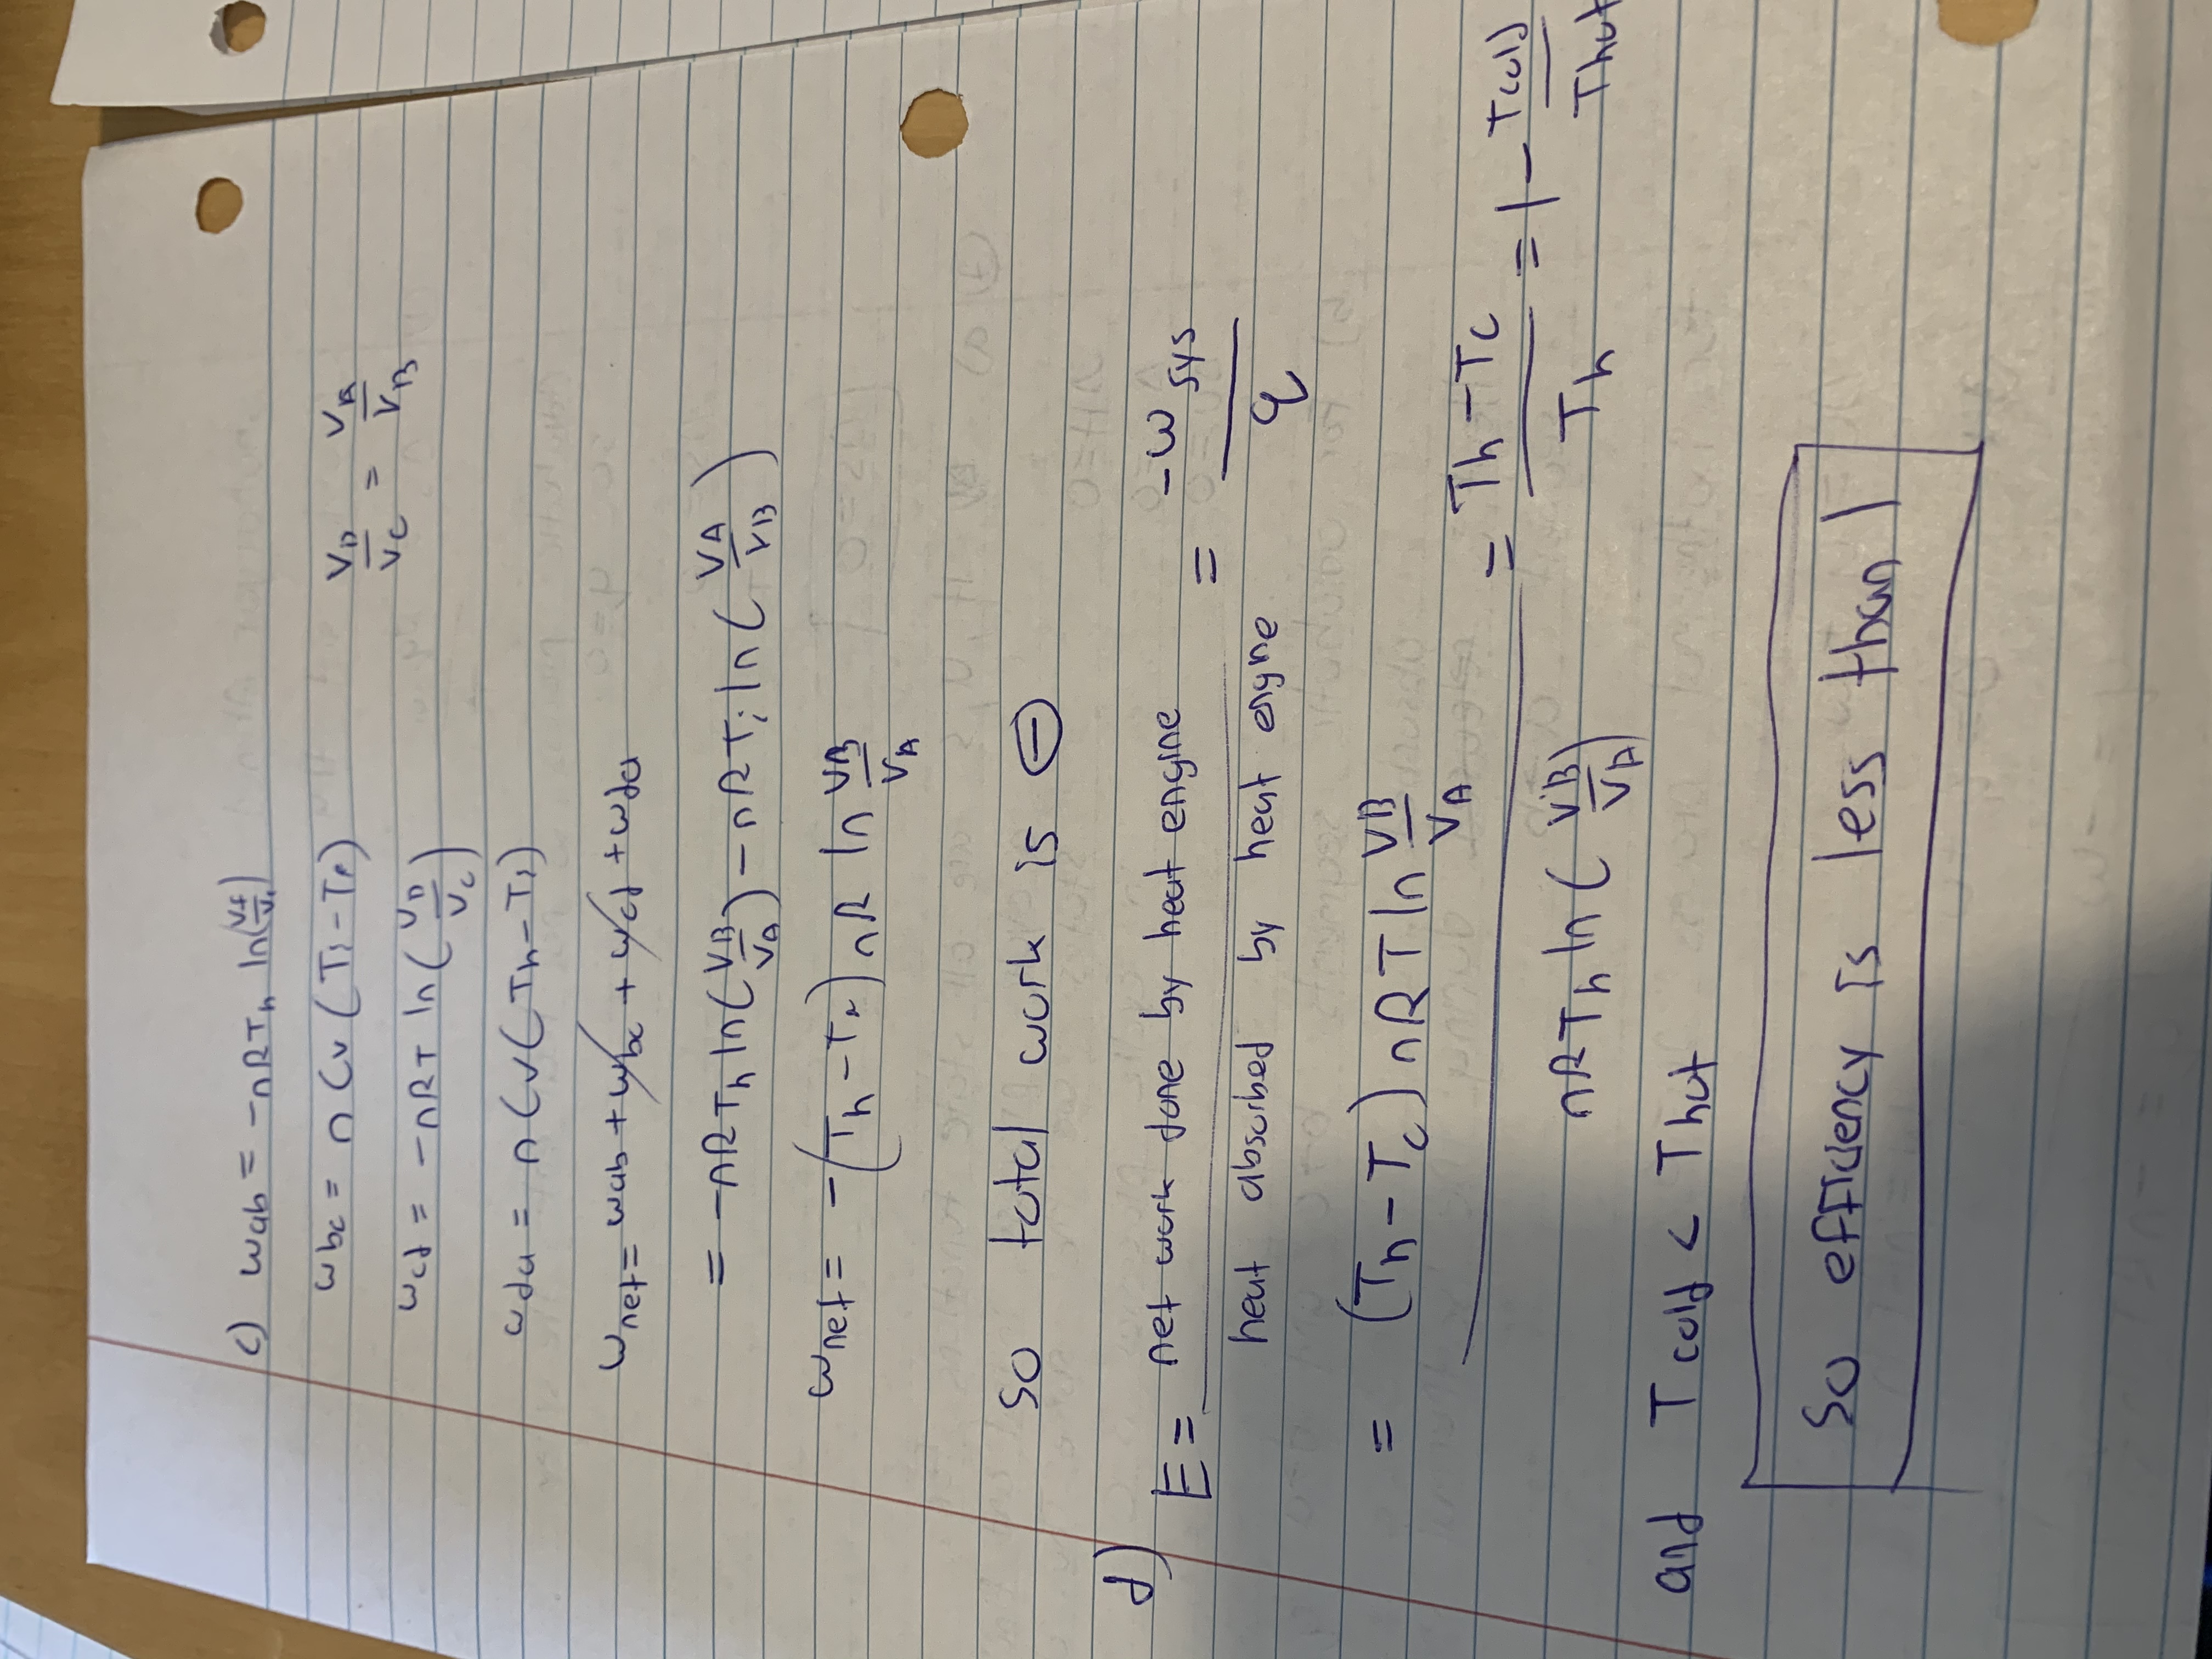 c) wab = -nRTh ln(Vf/Vi)
wbc = nCv(Ti-Te)
VD/VC = VA/VB
wcd = -nRT ln(VD/VC)
wda = nCv(Th-Ti)
wnet = wab + wbc + wcd + wda
= -nRTh ln(VB/VA) - nRTi ln(VA/VB)
wnet = -(Th-Tc) nR ln VB/VA
so total work is ⊖
d)
E = net work done by heat engine / heat absorbed by heat engine = -w sys / q
= (Th-Tc) nRT ln VB/VA / nRTh ln(VB/VA) = Th-Tc / Th = 1 - Tcold / Thot
and Tcold < Thot
So efficiency is less than 1